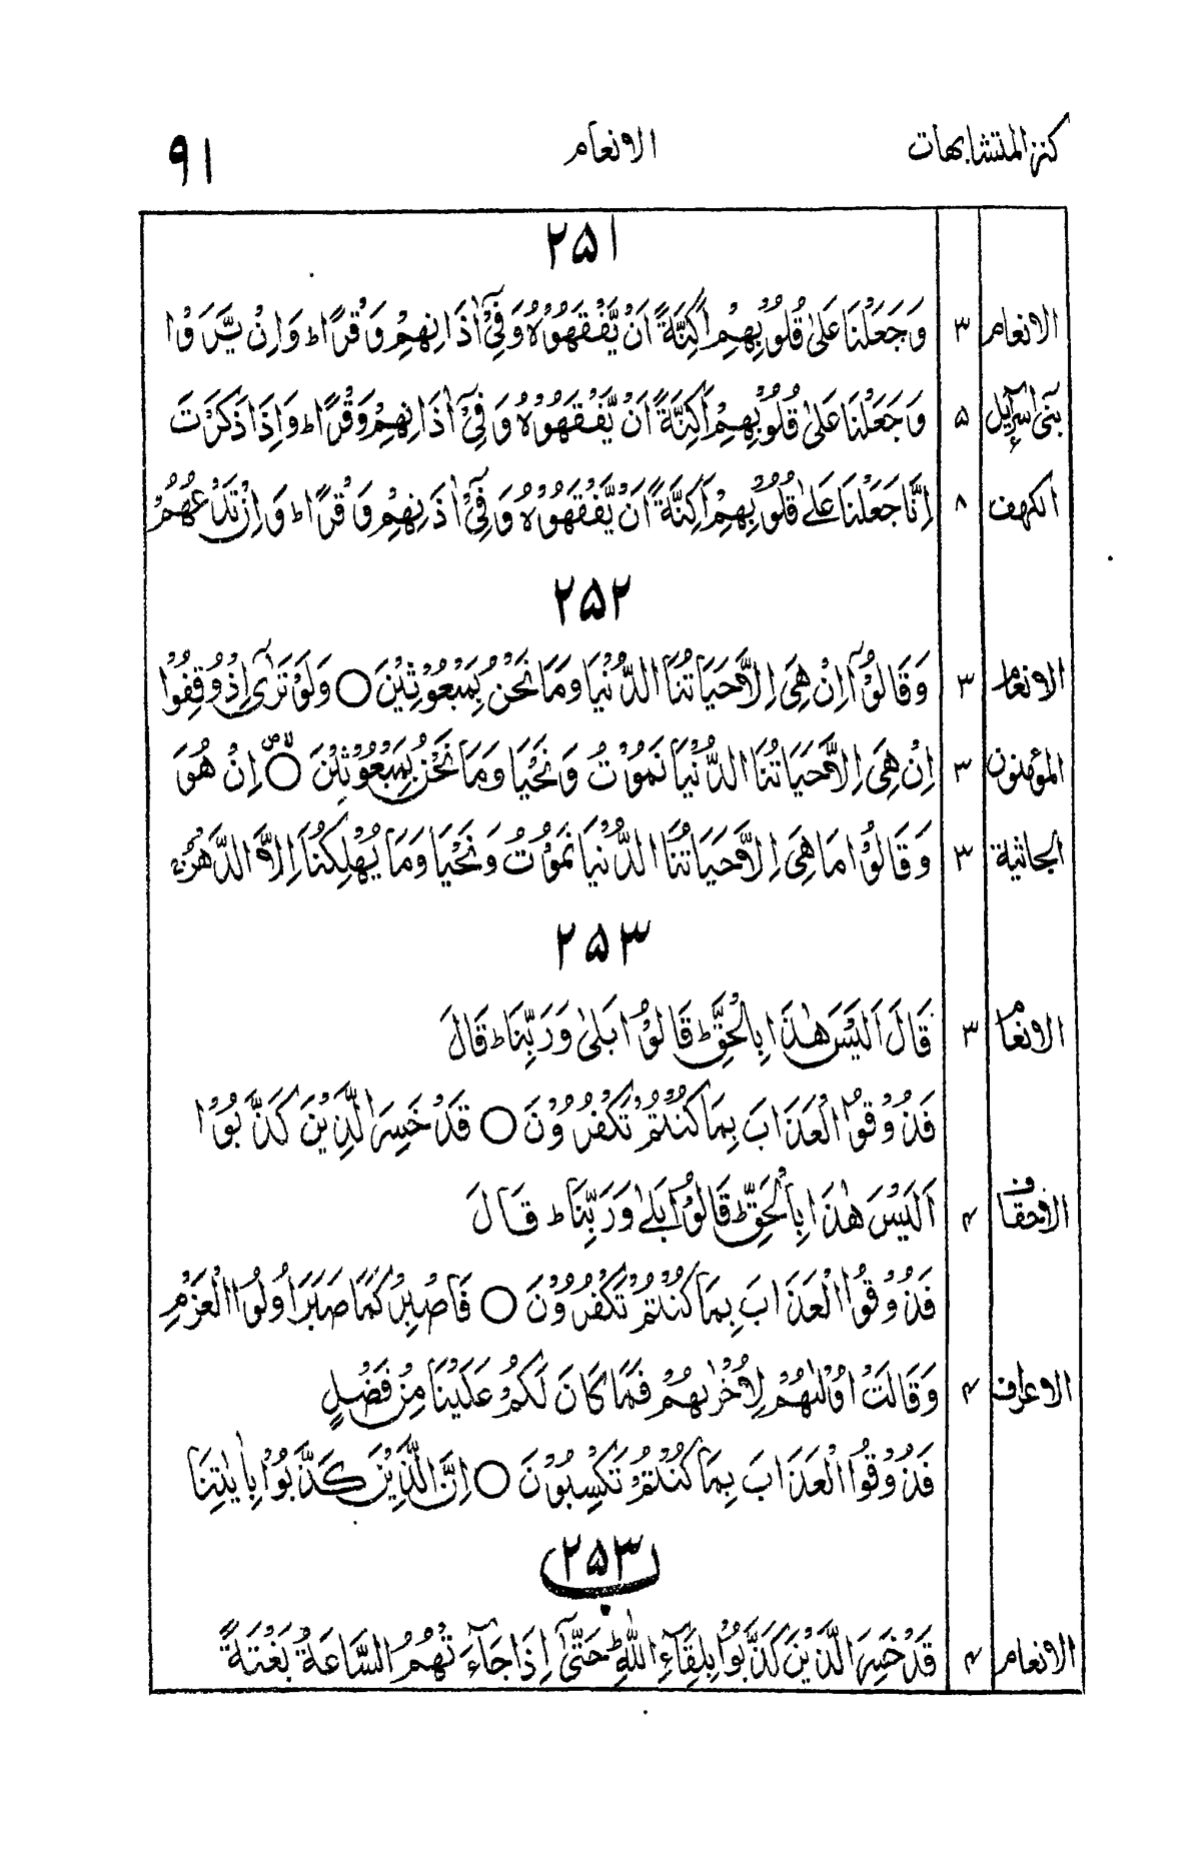 كنز المتشابهات الانعام ۹۱
۲۵۱
الانعام ۳ وَجَعَلْنَا عَلٰى قُلُوْبِهِمْ اَكِنَّةً اَنْ يَّفْقَهُوْهُ وَفِيْٓ اٰذَانِهِمْ وَقْرًا ؕ وَاِنْ يَّرَوْا
بنی اسرآئیل ۵ وَجَعَلْنَا عَلٰى قُلُوْبِهِمْ اَكِنَّةً اَنْ يَّفْقَهُوْهُ وَفِيْٓ اٰذَانِهِمْ وَقْرًا ؕ وَاِذَا ذَكَرْتَ
الكهف ۸ اِنَّا جَعَلْنَا عَلٰى قُلُوْبِهِمْ اَكِنَّةً اَنْ يَّفْقَهُوْهُ وَفِيْٓ اٰذَنِهِمْ وَقْرًا ؕ وَاِنْ تَدْعُهُمْ
۲۵۲
الانعام ۳ وَقَالُوْٓا اِنْ هِيَ اِلَّا حَيَاتُنَا الدُّنْيَا وَمَا نَحْنُ بِمَبْعُوْثِيْنَ ○ وَلَوْ تَرٰٓى اِذْ وُقِفُوْا
المؤمنون ۳ اِنْ هِيَ اِلَّا حَيَاتُنَا الدُّنْيَا نَمُوْتُ وَنَحْيَا وَمَا نَحْنُ بِمَبْعُوْثِيْنَ ○ اِنْ هُوَ
الجاثية ۳ وَقَالُوْا مَا هِيَ اِلَّا حَيَاتُنَا الدُّنْيَا نَمُوْتُ وَنَحْيَا وَمَا يُهْلِكُنَآ اِلَّا الدَّهْرُ ۚ
۲۵۳
الانعام ۳ قَالَ اَلَيْسَ هٰذَا بِالْحَقِّ ؕ قَالُوْا بَلٰى وَرَبِّنَا ؕ قَالَ
فَذُوْقُوا الْعَذَابَ بِمَا كُنْتُمْ تَكْفُرُوْنَ ○ قَدْ خَسِرَ الَّذِيْنَ كَذَّبُوْا
الاحقاف ۴ اَلَيْسَ هٰذَا بِالْحَقِّ ؕ قَالُوْا بَلٰى وَرَبِّنَا ؕ قَالَ
فَذُوْقُوا الْعَذَابَ بِمَا كُنْتُمْ تَكْفُرُوْنَ ○ فَاصْبِرْ كَمَا صَبَرَ اُولُوا الْعَزْمِ
الاعراف ۴ وَقَالَتْ اُوْلٰىهُمْ لِاُخْرٰىهُمْ فَمَا كَانَ لَكُمْ عَلَيْنَا مِنْ فَضْلٍ
فَذُوْقُوا الْعَذَابَ بِمَا كُنْتُمْ تَكْسِبُوْنَ ○ اِنَّ الَّذِيْنَ كَذَّبُوْا بِاٰيٰتِنَا
۲۵۳ ب
الانعام ۴ قَدْ خَسِرَ الَّذِيْنَ كَذَّبُوْا بِلِقَآءِ اللّٰهِ ؕ حَتّٰىٓ اِذَا جَآءَتْهُمُ السَّاعَةُ بَغْتَةً